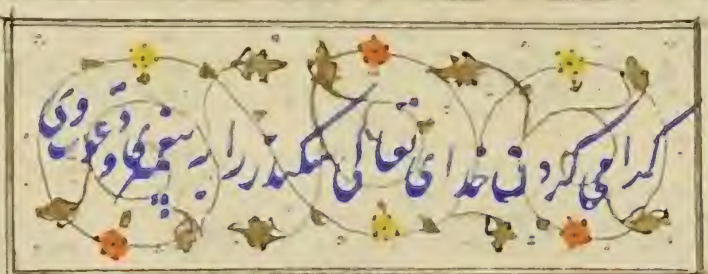 کرامی کردن خدای تعالی سکندر را به پیغمبری و دعوت وی